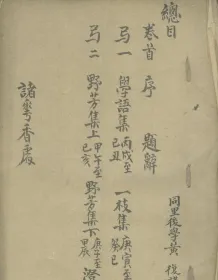 總目
卷首 序 題辭
弓一 學語集 丙戌至己丑 一枝集 庚寅至癸巳
弓二 野芳集上 甲午至己亥 野芳集下 庚子至甲辰
諸
香處
同里後學黃